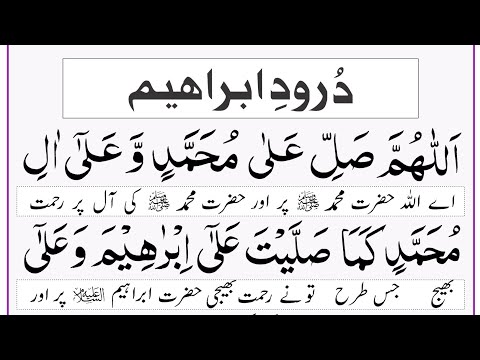 دُرودِ ابراھیم
اَللّٰهُمَّ صَلِّ عَلٰى مُحَمَّدٍ وَّ عَلٰٓى اٰلِ
اے اللہ حضرت محمد ﷺ پر اور حضرت محمد ﷺ کی آل پر رحمت
مُحَمَّدٍ كَمَا صَلَّيْتَ عَلٰٓى اِبْرٰهِيْمَ وَعَلٰٓى
بھیج جس طرح تو نے رحمت بھیجی حضرت ابراہیم علیہ السلام پر اور